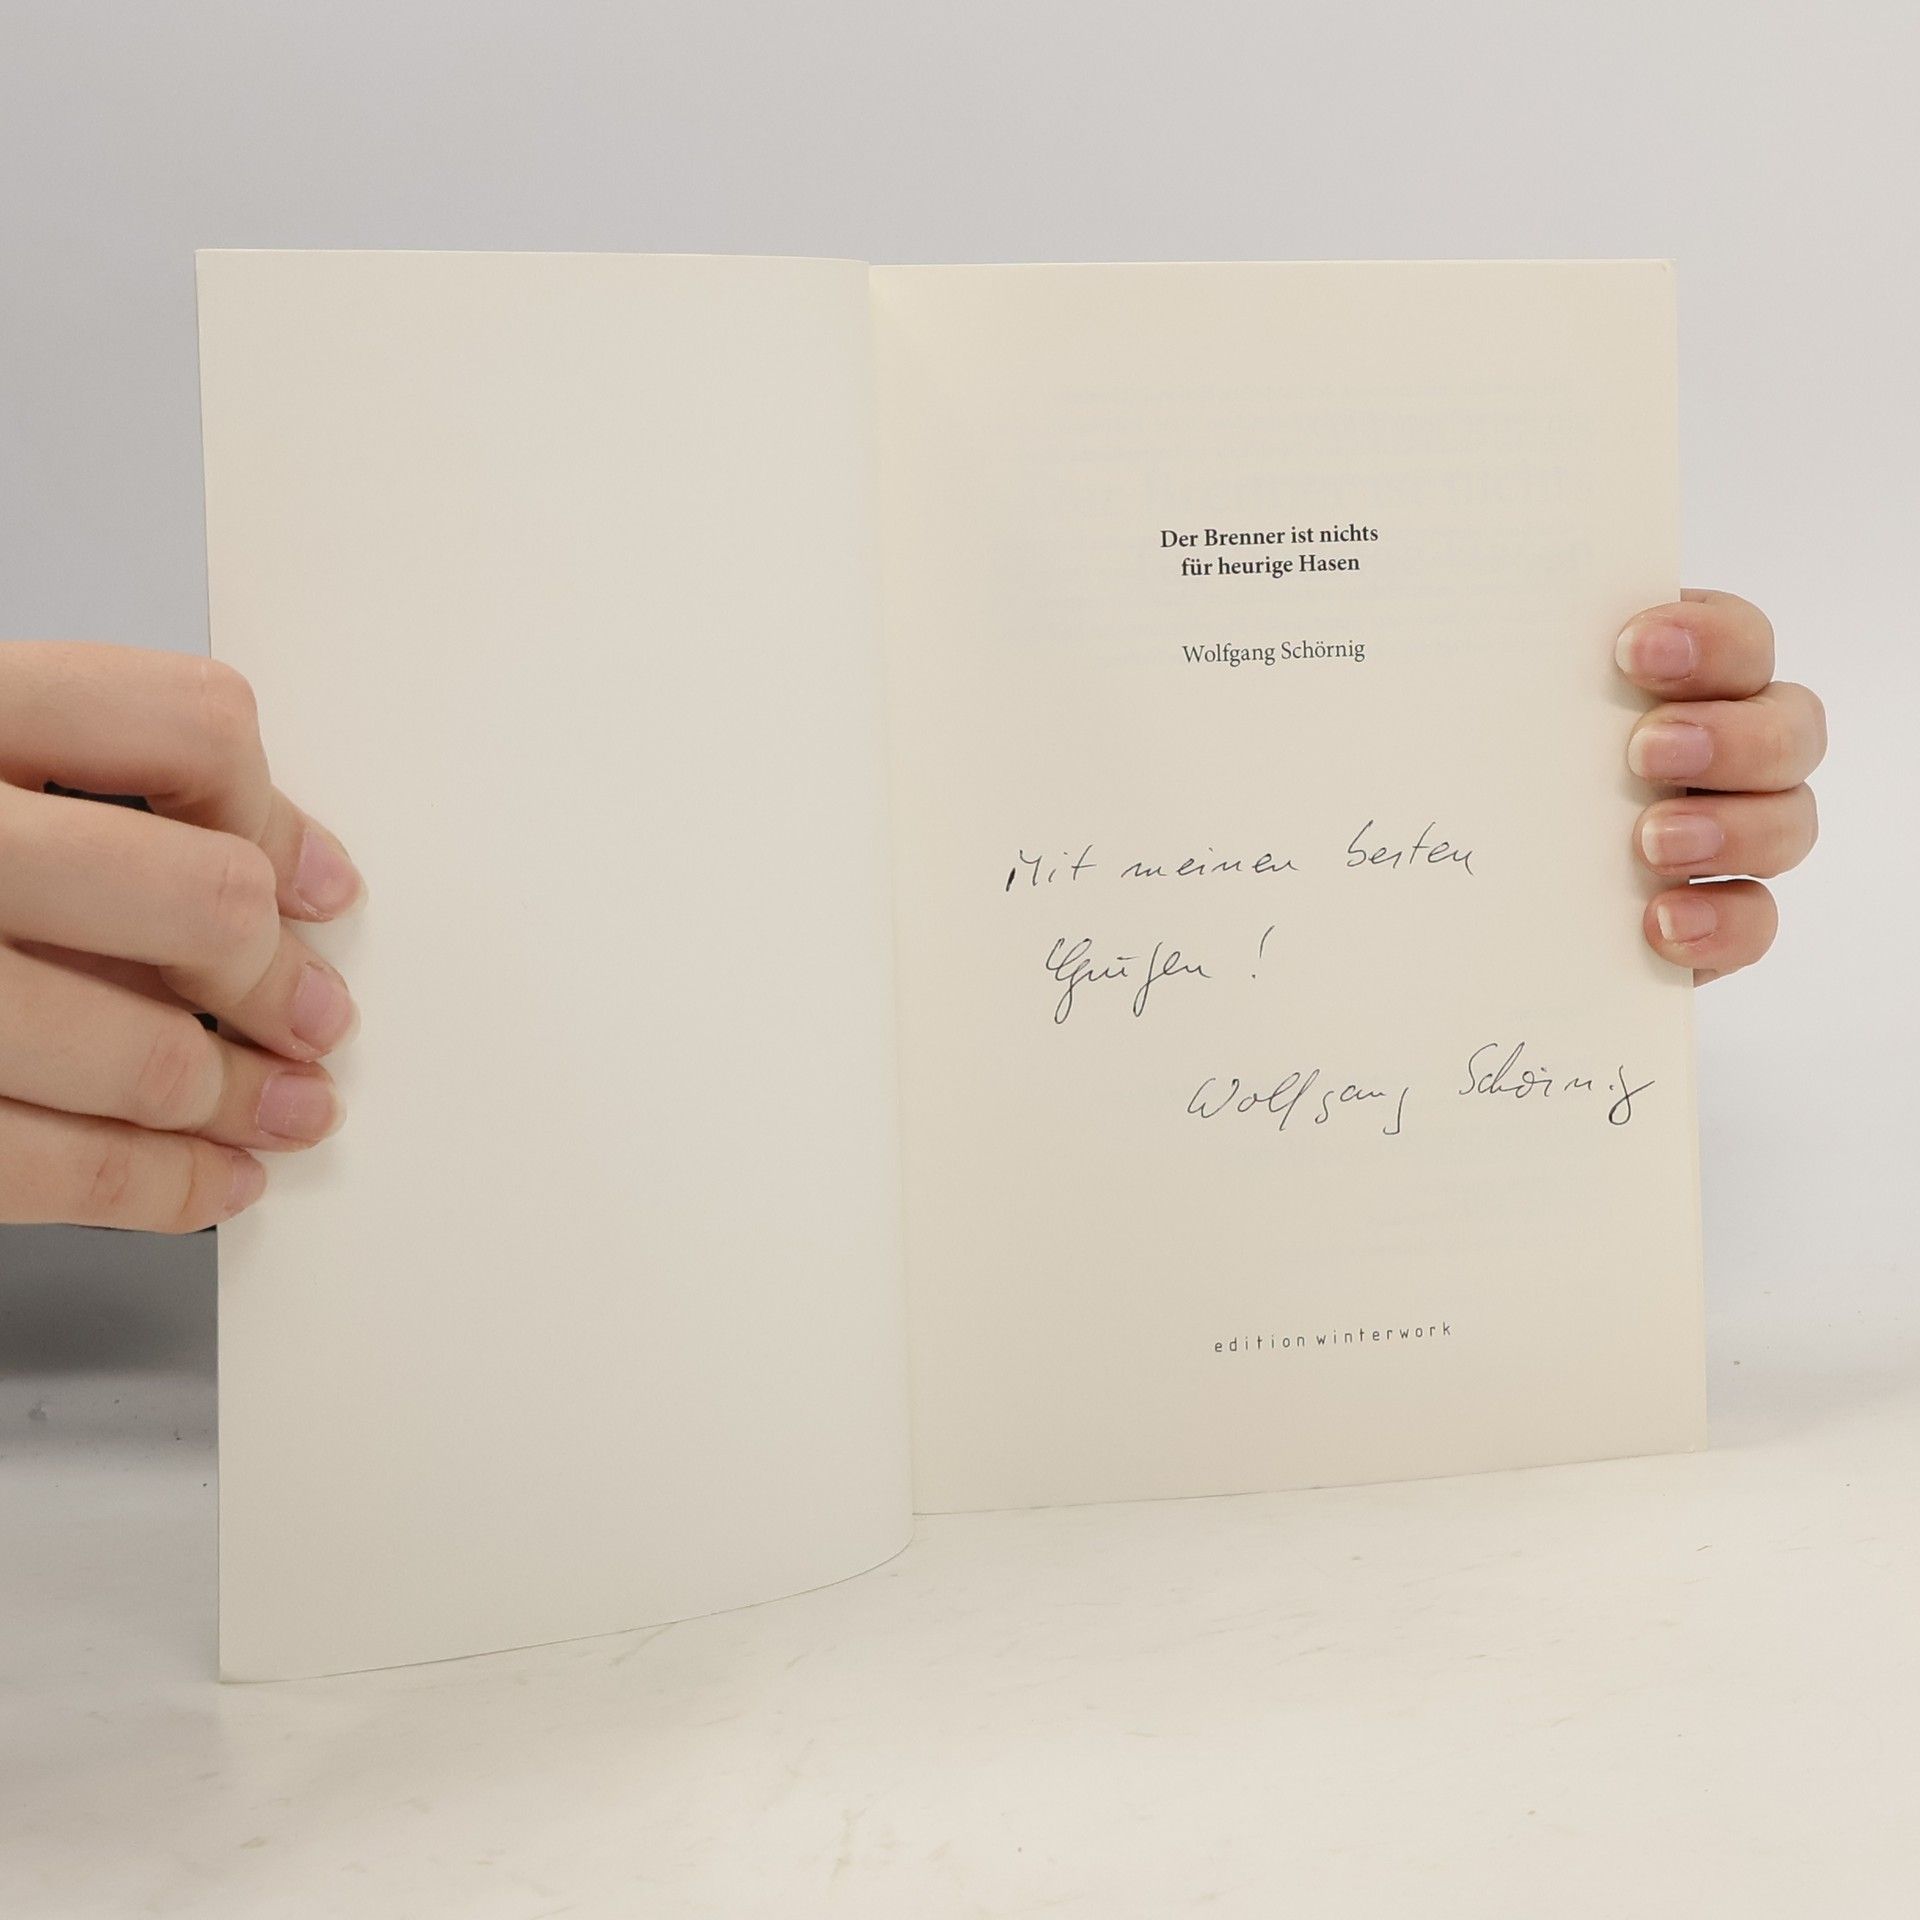 Der Brenner ist nichts
für heurige Hasen
Wolfgang Schörnig
Mit meinen besten
Grüßen !
Wolfgang Schörnig
edition winterwork